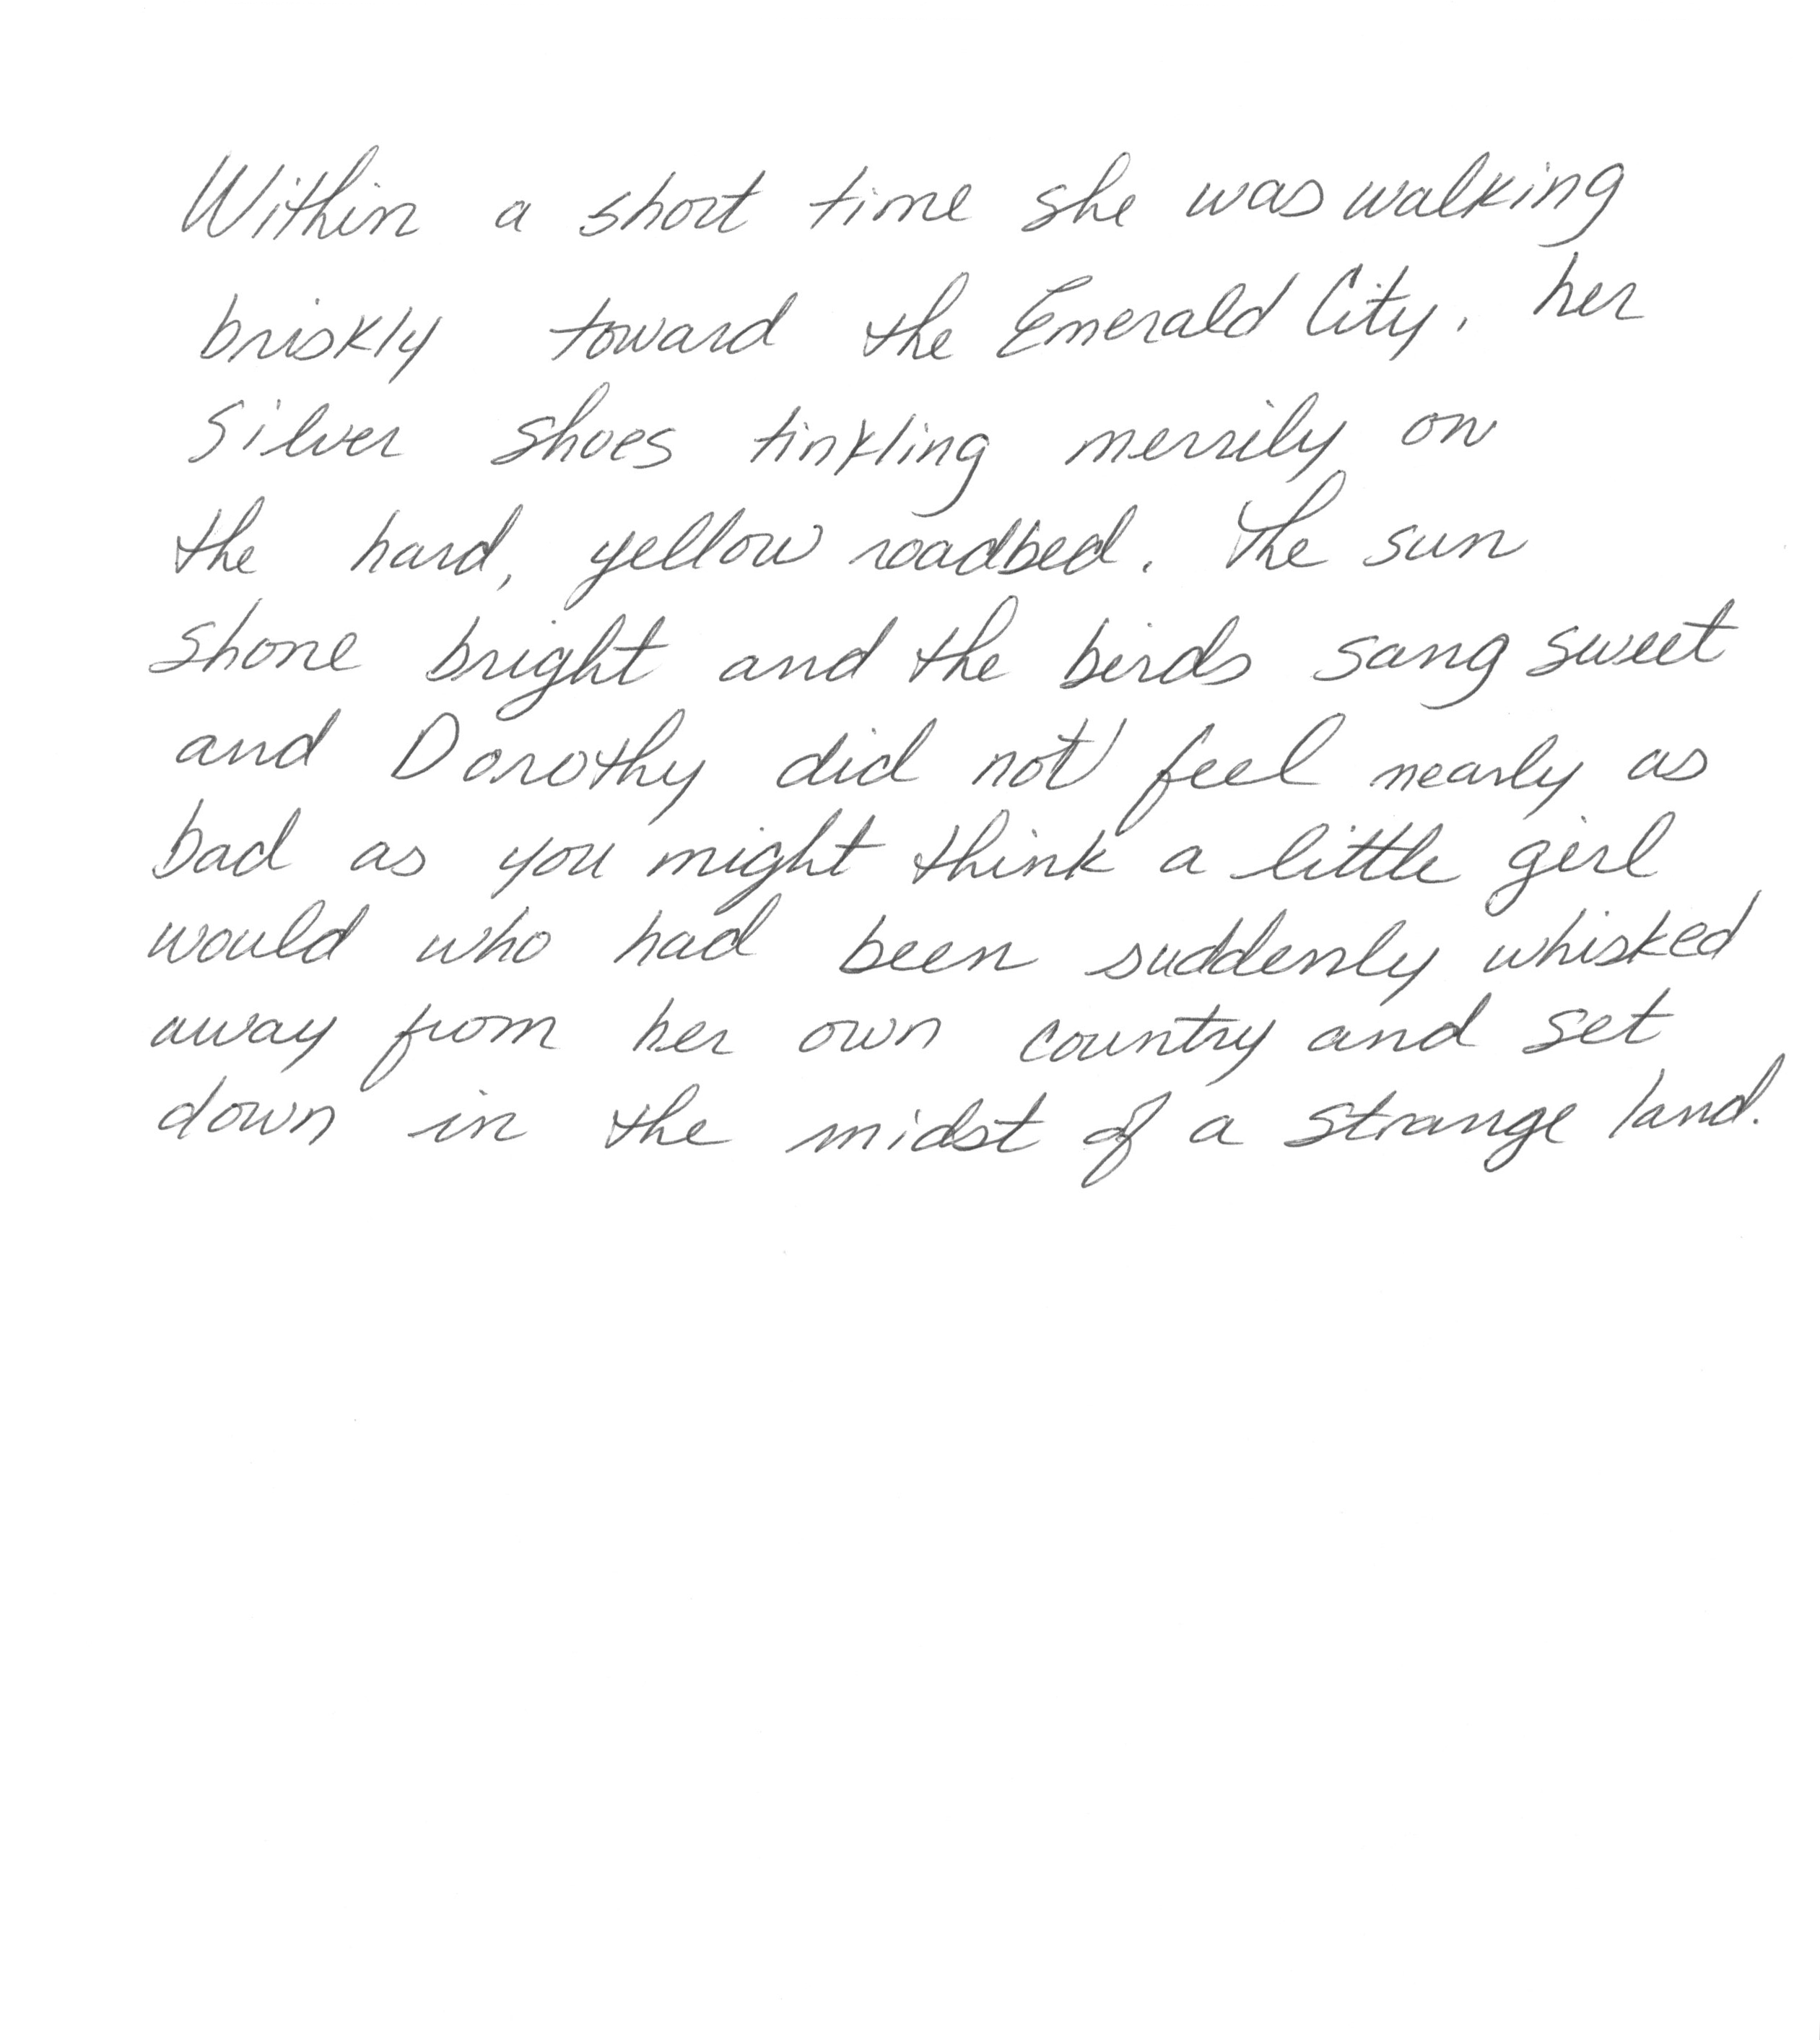 Within a short time she was walking
briskly toward the Emerald City, her
Silver shoes tinkling merrily on
the hard, yellow roadbed. The sun
shone bright and the birds sang sweet
and Dorothy did not feel nearly as
bad as you might think a little girl
would who had been suddenly whisked
away from her own country and set
down in the midst of a strange land.